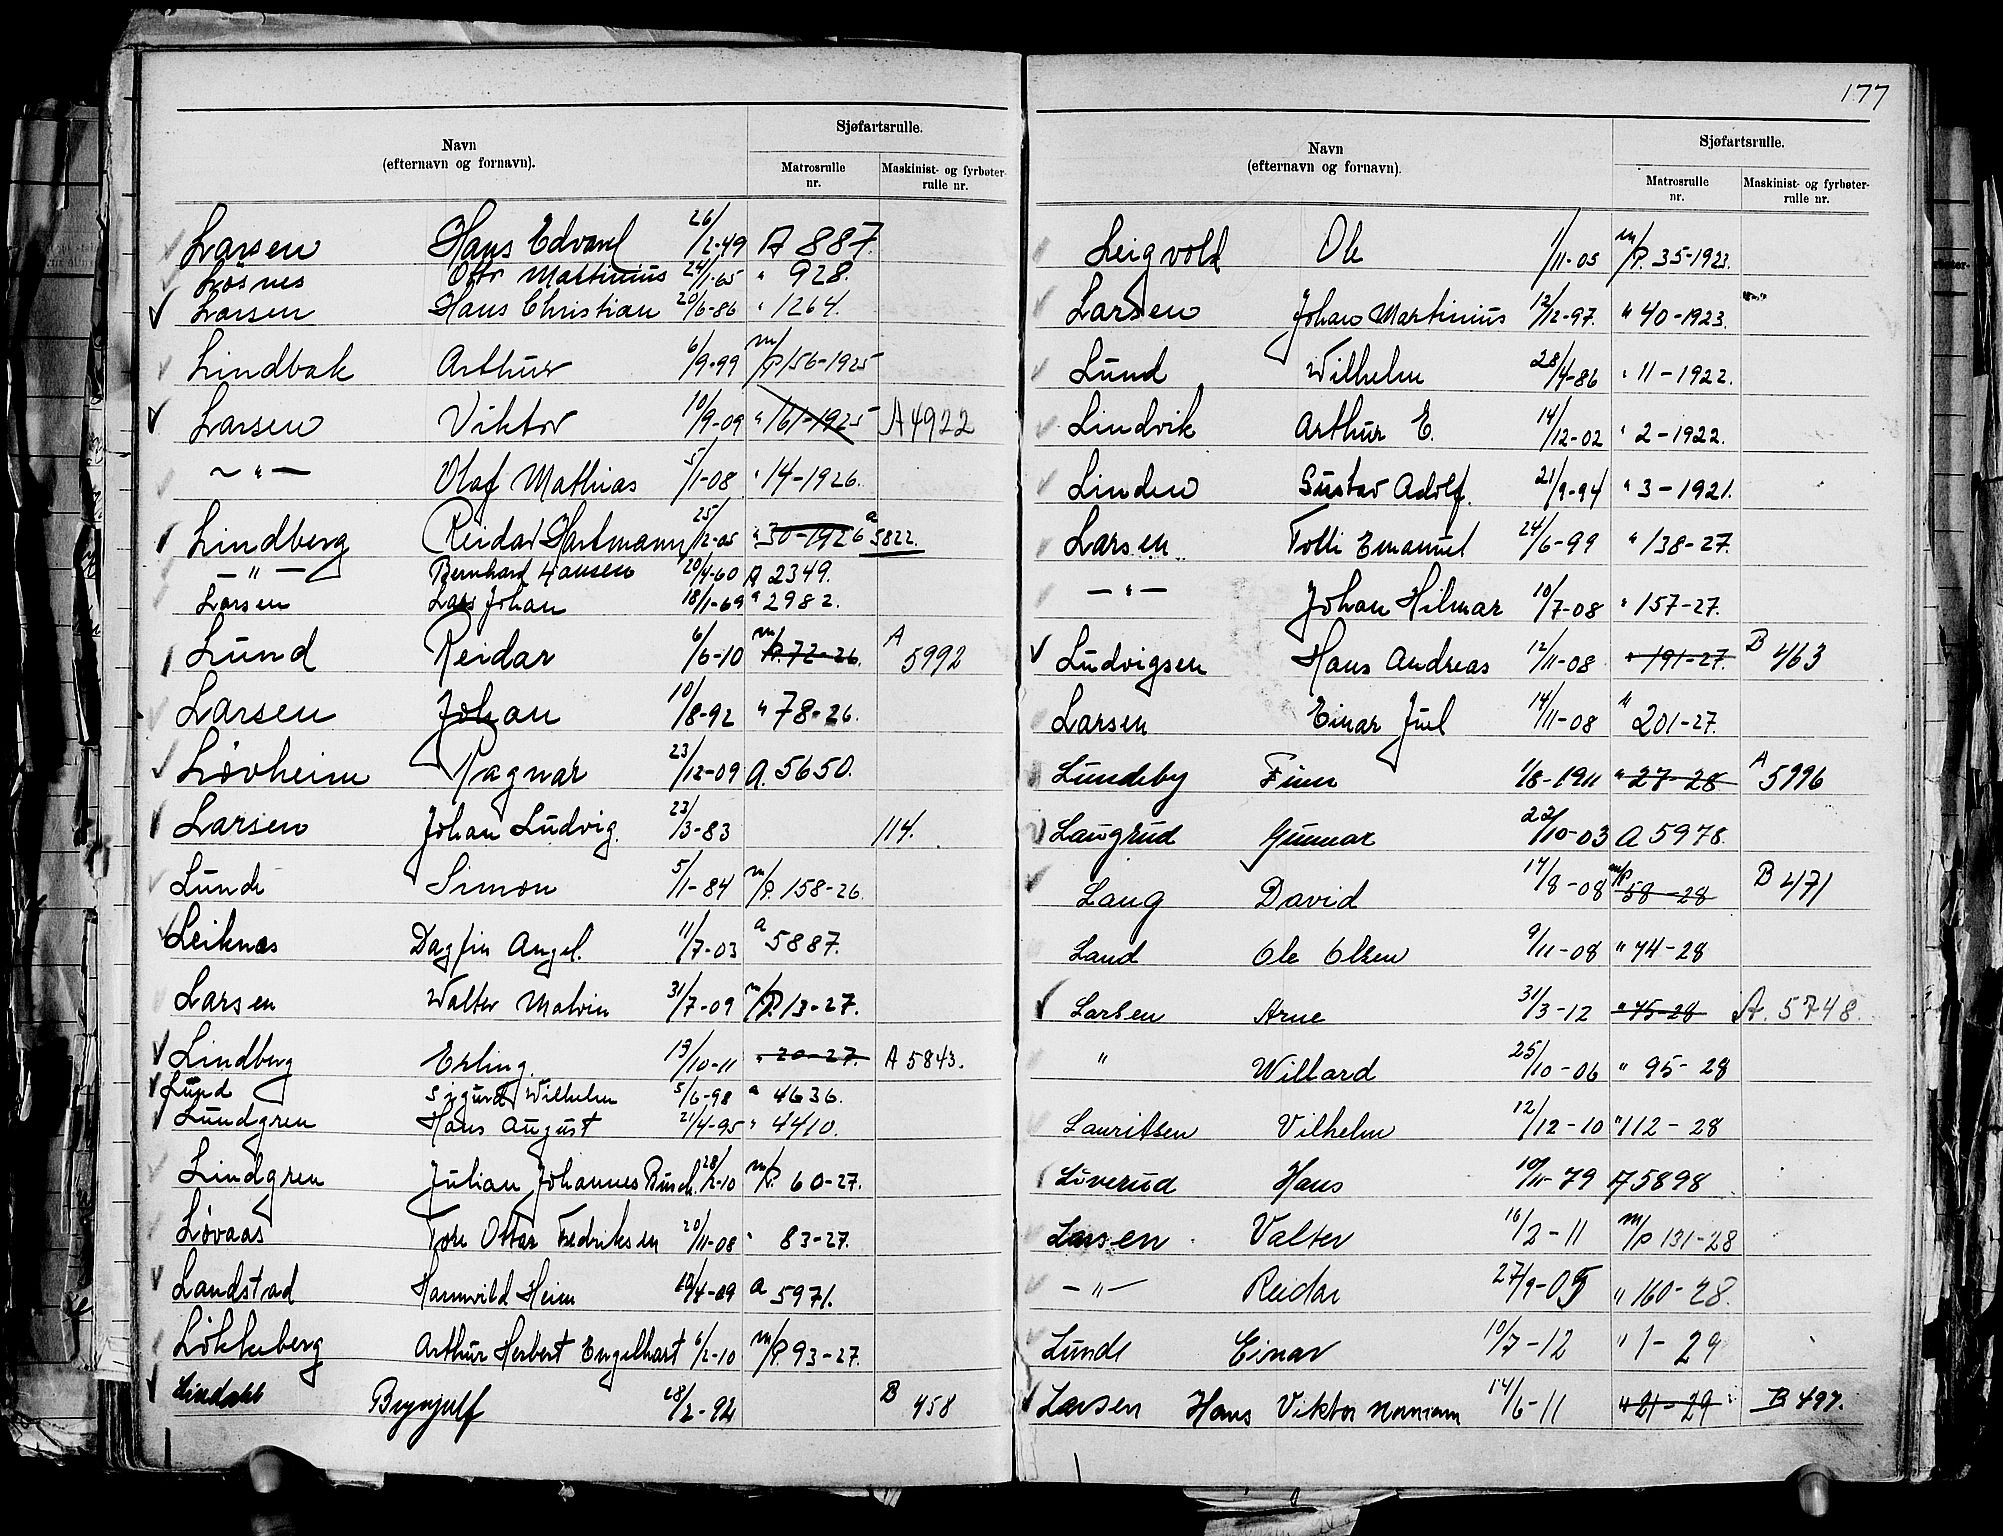 Navn
(efternavn og fornavn).
Sjøfartsrulle.
Matrosrulle nr.
Maskinist- og fyrbøter-rulle nr.
Larsen Hans Edvard 26/2-49 A 887.
Løsnes Otto Martinius 24/1-65 " 928.
Larsen Hans Christian 20/6-86 " 1264.
Lindbak Arthur 6/9-99 m/P. 156-1925
Larsen Viktor 10/9-09 " 161-1925 A 4922
-"- Olaf Mathias 5/1-08 " 14-1926.
Lindberg Reidar Hartmann 25/12-05 " 30-1926 a 5822.
-"- Bernhard Hansen 20/4-60 A 2349.
Larsen Lars Johan 18/1-69 " 2982.
Lund Reidar 6/6-10 m/P. 72-26. A 5992
Larsen Johan 10/8-92 " 78-26.
Løvheim Ragnar 23/12-09 A. 5650.
Larsen Johan Ludvig. 23/3-83 114.
Lunde Simon 5/1-84 m/P. 158-26.
Leiknes Dagfin Angel. 11/7-03 a 5887.
Larsen Walter Malvin 31/7-09 m/P. 13-27.
Lindberg Erling. 13/10-11 " 20-27. A 5843.
Lund Sigurd Wilhelm 5/6-98 a 4636.
Lundgren Hans August 21/4-95 " 4410.
Lindgren Julian Johannes Busch. 28/2-10 m/P. 60-27.
Løvaas Tore Ottar Fredriksen 20/11-08 " 83-27.
Landstad Harmvild Heim /4-09 a 5971.
Løkkeberg Arthur Herbert Engelhart 6/2-10 m/P. 93-27.
Lindahl Brynjulf 28/2-94 B 458
177
Navn
(efternavn og fornavn).
Sjøfartsrulle.
Matrosrulle nr.
Maskinist- og fyrbøter-rulle nr.
Leigvold Ole 1/11-05 m/P. 35-1923.
Larsen Johan Martinius 12/12-97. " 40-1923.
Lund Wilhelm 28/4-86 " 11-1922.
Lindvik Arthur E. 14/12-02 " 2-1922.
Linden Gustav Adolf. 21/9-94 " 3-1921.
Larsen Tolli Emanuel 24/6-99 " 138-27.
-"- Johan Hilmar 10/7-08 " 157-27.
Ludvigsen Hans Andreas 12/11-08 " 191-27. B 463
Larsen Einar Juel 14/11-08 " 201-27.
Lundeby Finn 1/8-1911 " 27-28 A 5996
Laugrud Gunnar 22/10-03 A 5978.
Laug David 17/8-08 m/P 58-28 B 471
Land Ole Olsen 9/11-08 " 74-28
Larsen Arne 31/3-12 " 75-28 A. 5748.
" Willard 25/10-06 " 95-28
Lauritsen Vilhelm 12/12-10 " 112-28
Løverud Hans 10/11-79 A 5898
Larsen Valter 16/2-11 m/P 131-28
-"- Reidar 27/9-05 " 160-28.
Lunde Einar 10/7-12 " 1-29
Larsen Hans Viktor Normann 14/6-11 " 21-29 B 497.